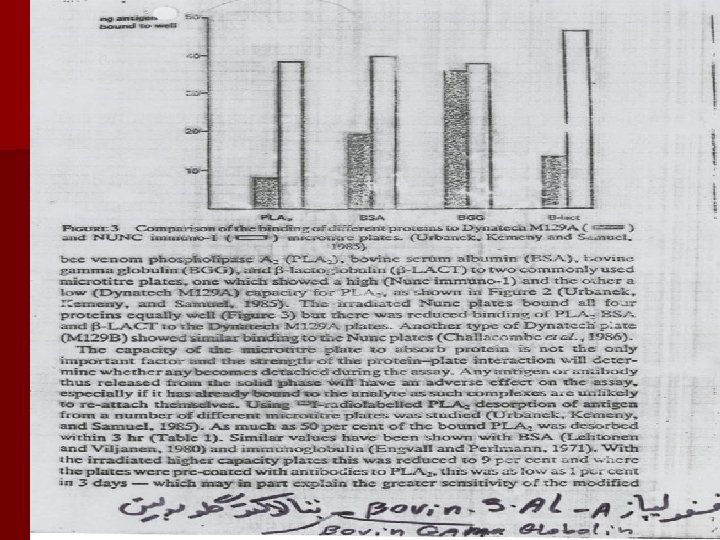 ng antigen
bound to well
50
40
30
20
10
PLA₂ BSA BGG B-lact
FIGURE 3 Comparison of the binding of different proteins to Dynatech M129A ( )
and NUNC immuno-1 ( ) microtitre plates. (Urbanek, Kemeny and Samuel,
1985)
bee venom phospholipase A₂ (PLA₂), bovine serum albumin (BSA), bovine
gamma globulin (BGG), and β-lactoglobulin (β-LACT) to two commonly used
microtitre plates, one which showed a high (Nunc immuno-1) and the other a
low (Dynatech M129A) capacity for PLA₂, as shown in Figure 2 (Urbanek,
Kemeny, and Samuel, 1985). The irradiated Nunc plates bound all four
proteins equally well (Figure 3) but there was reduced binding of PLA₂ BSA
and β-LACT to the Dynatech M129A plates. Another type of Dynatech plate
(M129B) showed similar binding to the Nunc plates (Challacombe et al., 1986).
The capacity of the microtitre plate to absorb protein is not the only
important factor and the strength of the protein–plate interaction will deter-
mine whether any becomes detached during the assay. Any antigen or antibody
thus released from the solid phase will have an adverse effect on the assay,
especially if it has already bound to the analyte as such complexes are unlikely
to re-attach themselves. Using ¹²⁵I-radiolabelled PLA₂ desorption of antigen
from a number of different microtitre plates was studied (Urbanek, Kemeny,
and Samuel, 1985). As much as 50 per cent of the bound PLA₂ was desorbed
within 3 hr (Table 1). Similar values have been shown with BSA (Lehtonen
and Viljanen, 1980) and immunoglobulin (Engvall and Perlmann, 1971). With
the irradiated higher capacity plates this was reduced to 9 per cent and where
the plates were pre-coated with antibodies to PLA₂, this was as low as 1 per cent
in 3 days — which may in part explain the greater sensitivity of the modified
فسفولیپاز A - Bovin. S. AL -
Bovin GAMA Globolin